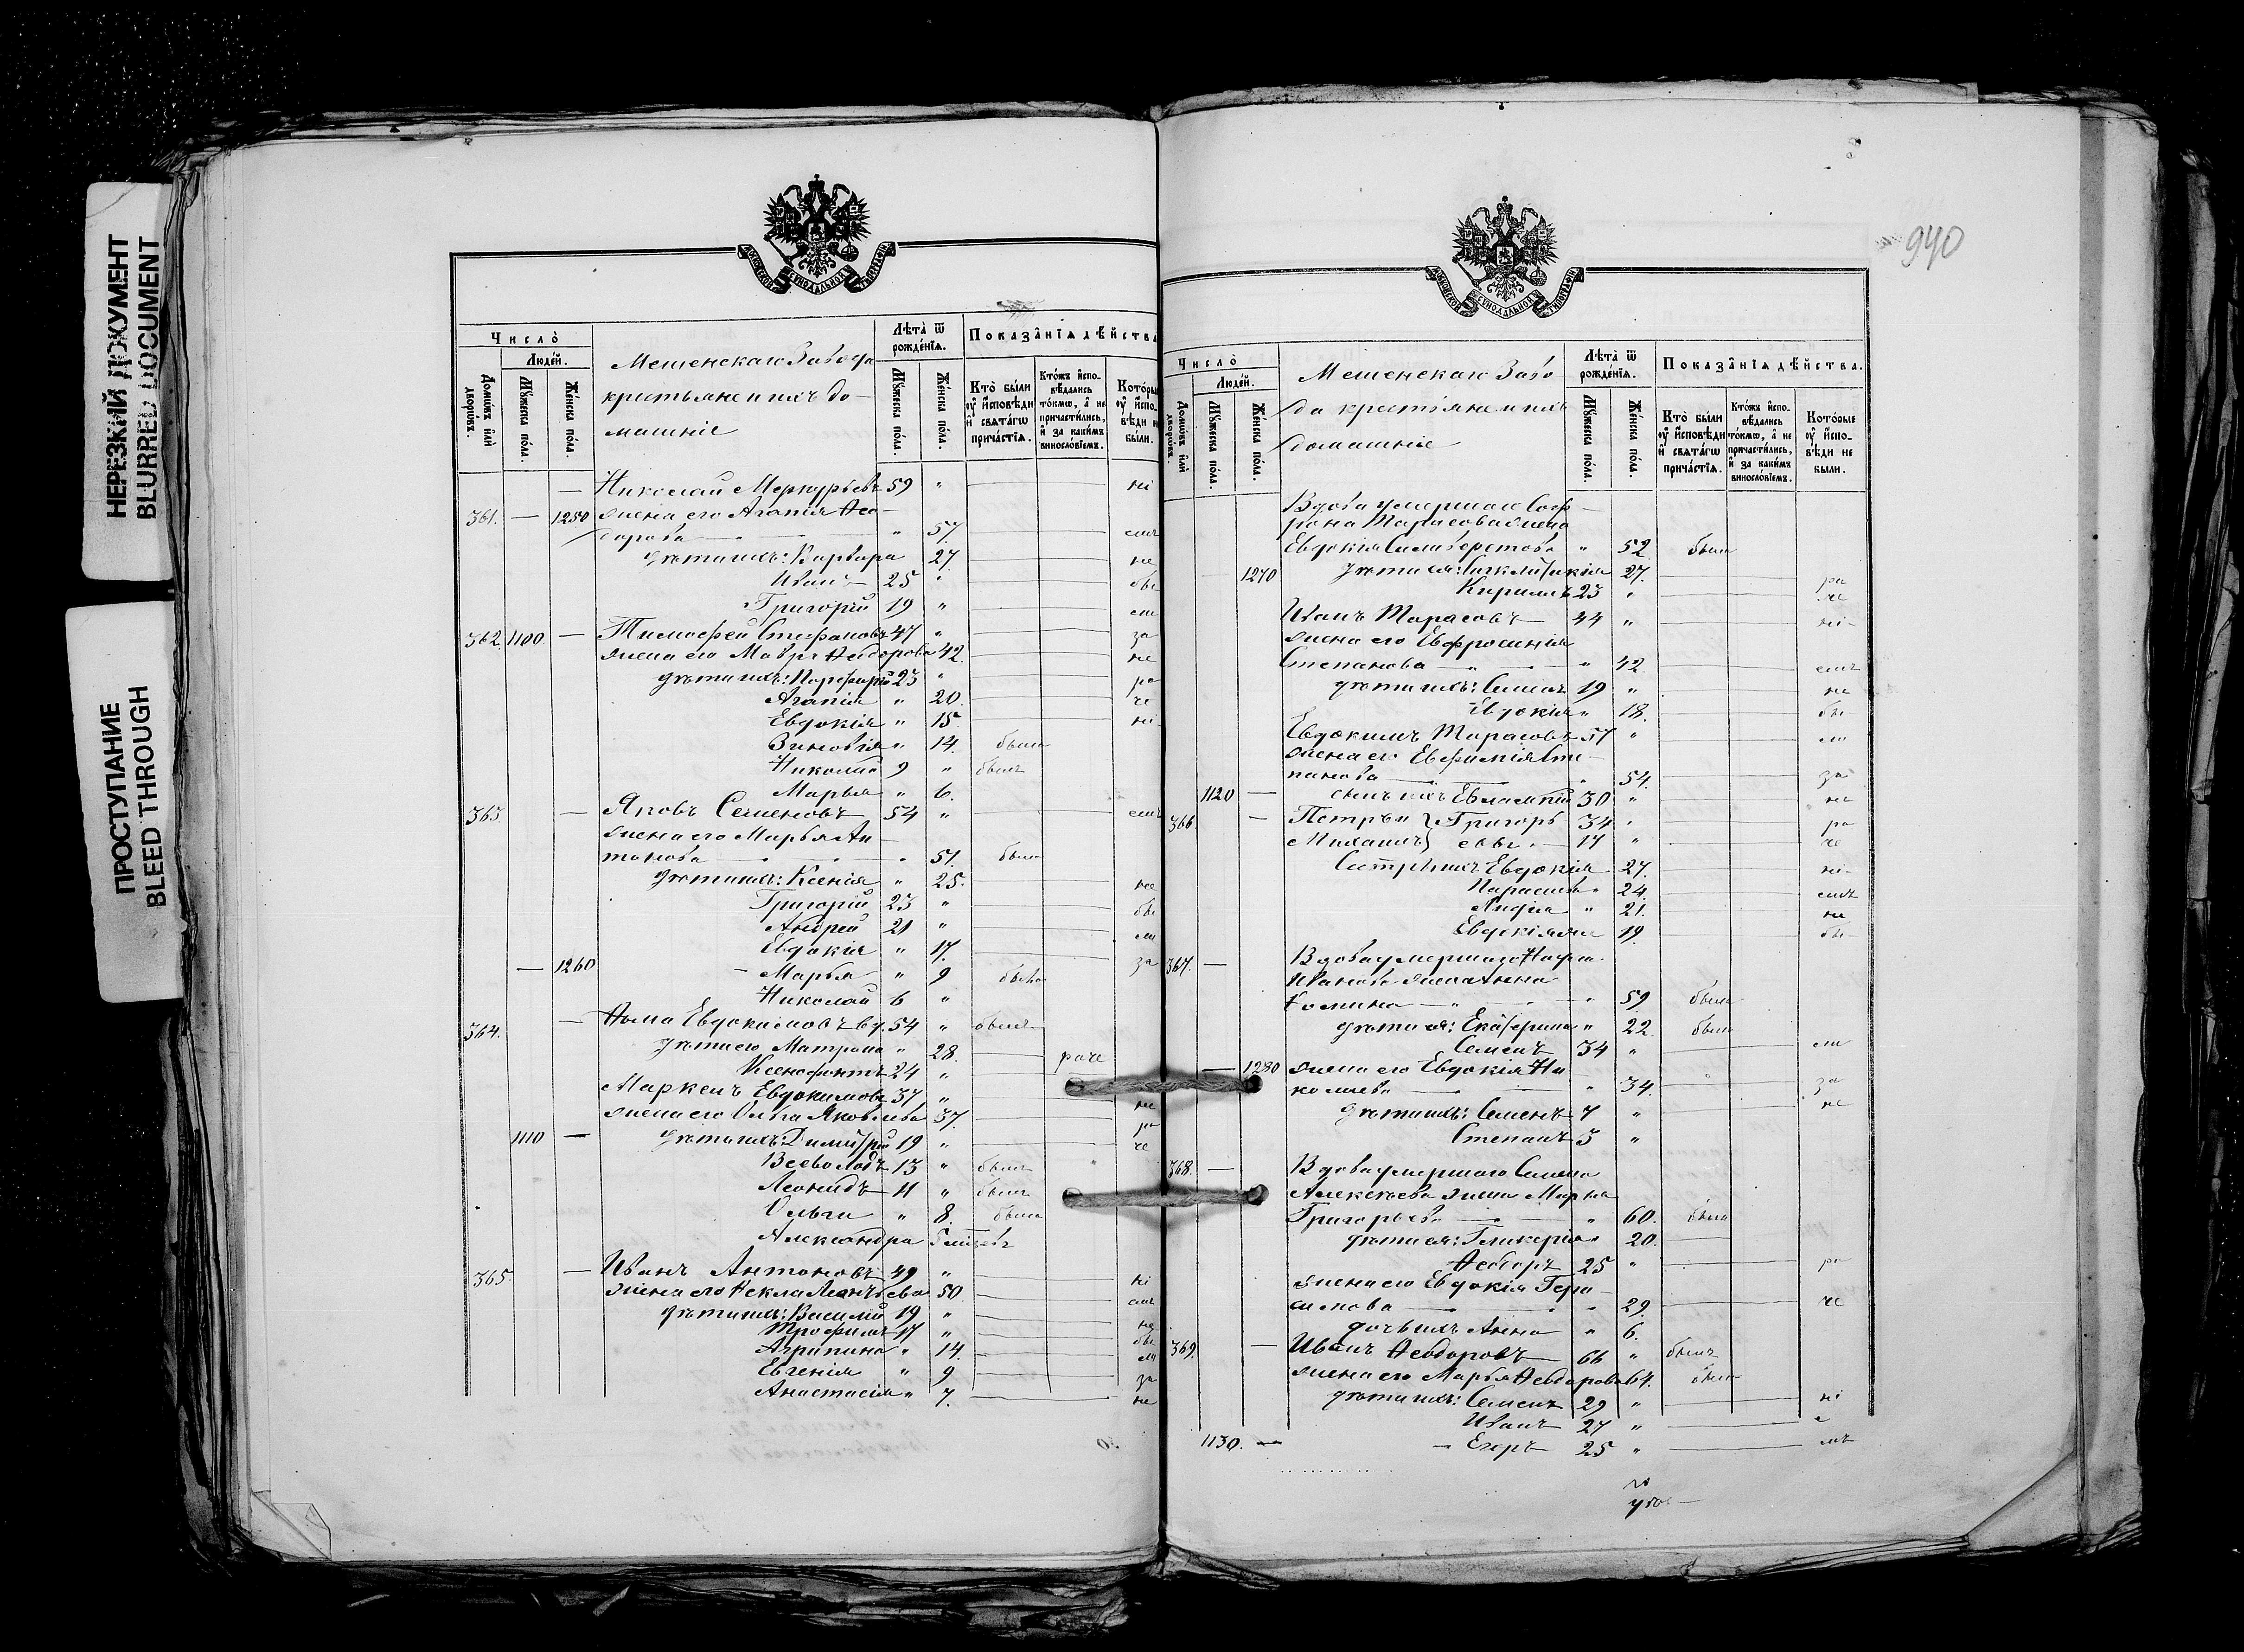 НЕРЕЗКИЙ ДОКУМЕНТ
BLURRED DOCUMENT
ПРОСТУПАНИЕ
BLEED THROUGH
МОСКОВСКОЙ СѴНОДАЛЬНОЙ ТѴПОГРАФІИ
Число̀
Людéй.
Домѡ́въ и҆лѝ дворѡ́въ.
Мꙋ́жеска по́ла.
Же́нска по́ла.
Мешенскаго Завода
крестьяне и ихъ до-
машніе
Лѣта̀ ѿ рожде́нїѧ.
Мꙋ́жеска по́ла.
Же́нска по́ла.
Показа̂нїѧ дѣ́йства
Кто̀ бы́ли ᲂу҆ и҆́сповѣди и҆ свѧта́гѡ прича́стїѧ.
Кто́жъ и҆спо-вѣ́дались то́кмѡ, а҆ не причасти́лись, и҆ за каки́мъ виносло́вїемъ.
Кото́рые ᲂу҆ и҆спо-вѣди не бы́ли.
— Николай Меркурьевъ 59 " ні
361. — 1250 жена его Агапія Ѳео-
дорова " 57. емъ
дѣти ихъ: Варвара 27 не
Иванъ 25 " бы
Григорій 19 " ли
362. 1100 — Тимофей Стефановъ 47 " за
жена его Мавра Ѳеодорова 42. не
дѣти ихъ: Порфирій 23 " ра
Агапія " 20. че
Евдокія " 15 ні
Зиновія " 14. была
Николай 9 " былъ
Марья " 6.
363. — Яковъ Семеновъ 54 " емъ
жена его Марья Ан-
тонова " 51. была
дѣти ихъ: Ксенія " 25. не
Григорій 23 " бы
Андрей 21 " ли
Евдокія " 17. за
— 1260 — Марья " 9 была
Николай 6 "
364. — Ѳома Евдокимовъ вд. 54 " былъ
дѣти его Матрона " 28. раче
Ксенофонтъ 24 "
Маркелъ Евдокимовъ 37 " не
жена его Ольга Яковлева 37. ра
1110 — дѣти ихъ: Димитрій 19 " че
Всеволодъ 13 " былъ
Леонидъ 11 " былъ
Ольга " 8. была
Александра
365. — Иванъ Антоновъ 49 " ні
жена его Ѳекла Леонтьева 50 емъ
дѣти ихъ: Василій 19 " не
Трофимъ 17 " бы
Агрипина " 14. ли
Евгенія " 9 за
Анастасія " 7. не
940
МОСКОВСКОЙ СѴНОДАЛЬНОЙ ТѴПОГРАФІИ
Число̀
Людéй.
Домѡ́въ и҆лѝ дворѡ́въ.
Мꙋ́жеска по́ла.
Же́нска по́ла.
Мешенскаго Заво
да крестьяне и ихъ
домашніе
Лѣта̀ ѿ рожде́нїѧ.
Мꙋ́жеска по́ла.
Же́нска по́ла.
Показа̂нїѧ дѣ́йства.
Кто̀ бы́ли ᲂу҆ и҆́сповѣди и҆ свѧта́гѡ прича́стїѧ.
Кто́жъ и҆спо-вѣ́дались то́кмѡ, а҆ не причасти́лись, и҆ за каки́мъ виносло́вїемъ.
Кото́рые ᲂу҆ и҆спо-вѣди не бы́ли.
Вдова умершаго Соф-
рона Тарасова жена
Евдокія Силиверстова " 52. была
1270 дѣти ея: 27. ра
Кирилъ 23 " че
Иванъ Тарасовъ 44 " ні-
жена его Евфросинія
Степанова " 42. емъ
дѣти ихъ: Семенъ 19 " не
Евдокія " 18. бы-
Евдокимъ Тарасовъ 57 " ли
жена его Евфимія Сте-
панова " 54. за
1120 — сынъ ихъ Евлампій 30 " не
366. — Петръ и } Григорь 34 " ра
Михаилъ } евы 17 " че
Сестры ихъ Евдокія 27. ні-
Параскева " 24. емъ
Лидія " 21. не
Евдокія 19. бы-
367. — Вдова умершаго
Иванова жена Анна
Ѳомина " 59. была
дѣти ея: Екатерина " 22. была
Семенъ 34 " ли
— 1280 жена его Евдокія Ни
колаева " 34. за
дѣти ихъ: Семенъ 7 " не
Степанъ 3 "
368. — Вдова умершаго Семена
Алексѣева жена Марѳа
Григорьева " 60. была
дѣти ея: Гликерія " 20.
Ѳеодоръ 25 " ра
жена его Евдокія Гера-
симова " 29. че
дочь ихъ Анна " 6.
369. — Иванъ Ѳеодоровъ 66 " былъ
жена его Марья Ѳеодорова 64. была
дѣти ихъ: Семенъ 29 " ні
Иванъ 27 " е
1130. — — Егоръ 25 " мъ